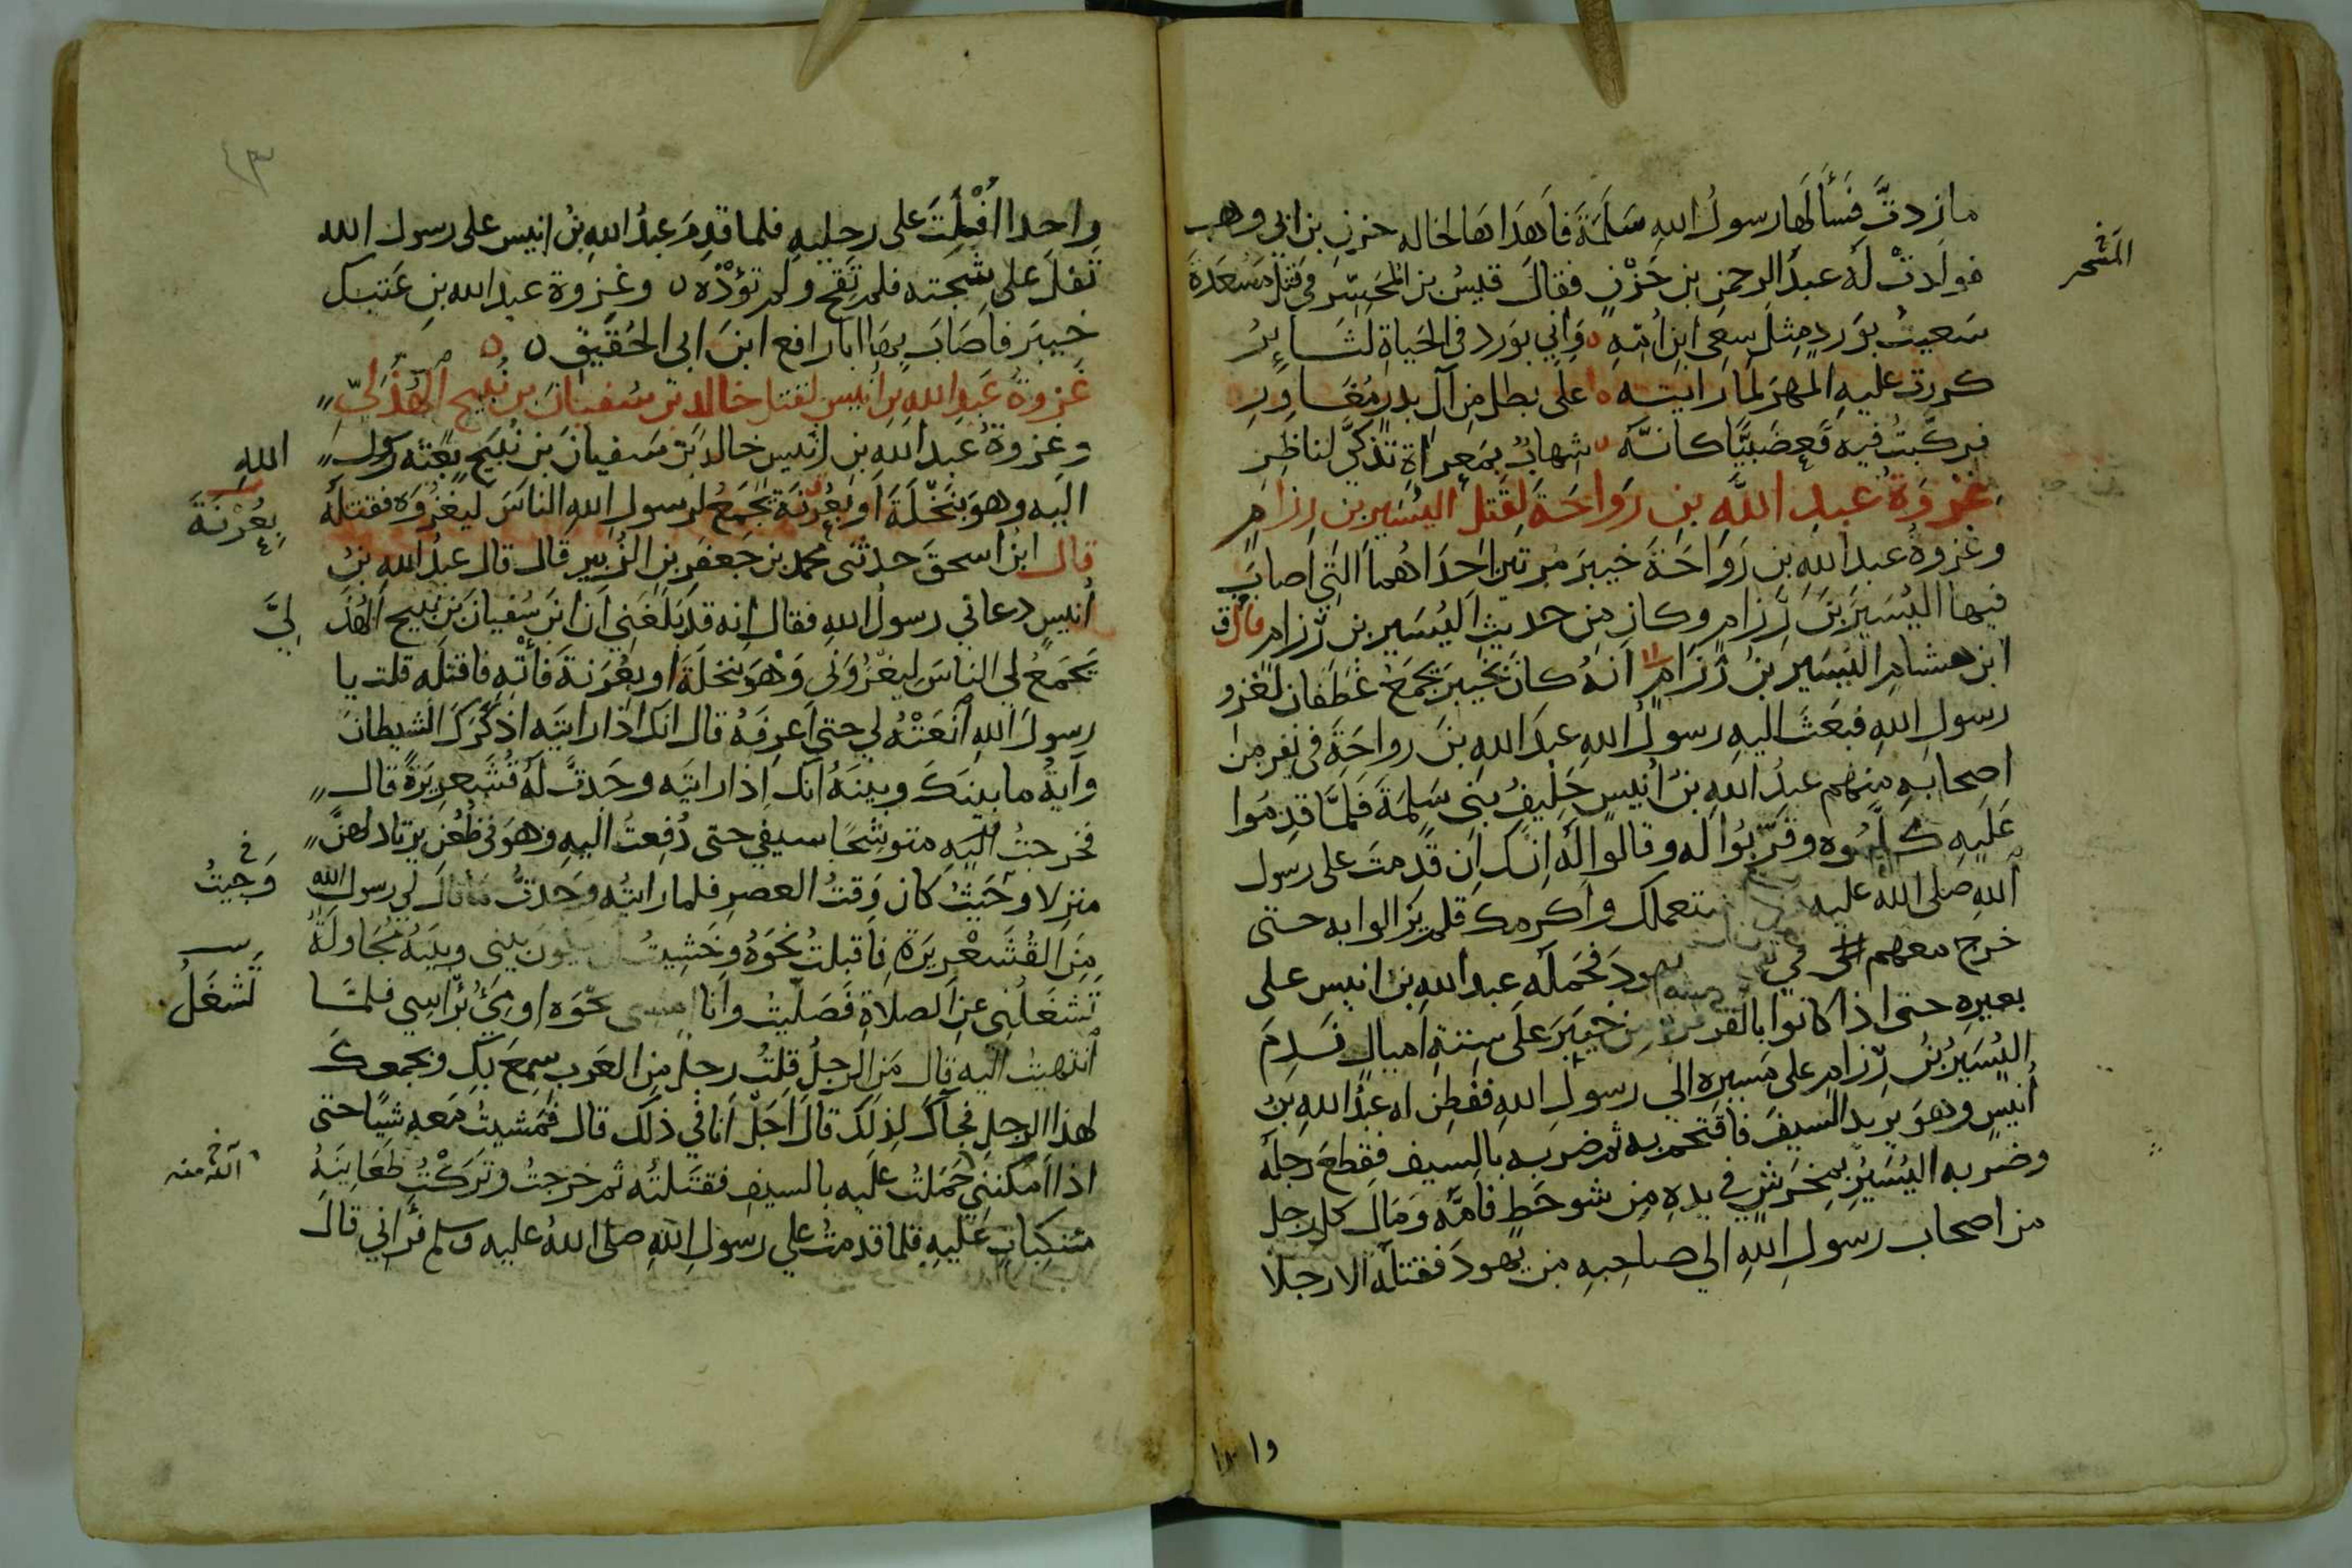 ما زدت فسألها رسول الله سلمة فأهداها لخاله حزن بن ابي وهب
فولدت له عبد الرحمن بن حزن فقال قيس بن المحسر في قتل مسعدة
المسحر
سعيت بورد مثل سعي ابن امه ه واني بورد في الحياة لثائر
كررت عليه المهر لما رايته ه على بطل من آل بدر مغاور
فركبت فيه قعضبيا كانه ه شهاب بمعراة تذكى لناظر
غزوة عبد الله بن رواحة لقتل اليسير بن رزام
وغزوة عبد الله بن رواحة خيبر مرتين احداهما التي اصاب
فيها اليسير بن رزام وكان من حديث اليسير بن رزام قال
ابن هشام اليسير بن رزام انه كان بخيبر يجمع غطفان لغزو
رسول الله فبعث اليه رسول الله عبد الله بن رواحة في نفر من
اصحابه منهم عبد الله بن أنيس حليف بني سلمة فلما قدموا
عليه كلموه وقربوا له وقالوا له انك ان قدمت على رسول
الله صلى الله عليه استعملك واكرمك فلم يزالوا به حتى
خرج معهم في يهود فحمله عبد الله بن انيس على
بعيره حتى اذا كانوا بالقرقرة من خيبر على ستة اميال ندم
اليسير بن رزام على مسيره الى رسول الله ففطن له عبد الله بن
أنيس وهو يريد السيف فاقتحم به ثم ضربه بالسيف فقطع رجله
وضربه اليسير بمخرش في يده من شوحط فأمه ومال كل رجل
من اصحاب رسول الله الى صاحبه من يهود فقتله الا رجلا
واحدا
٤٣
واحدا افلت على رجليه فلما قدم عبد الله بن انيس على رسول الله
تفل على شجته فلم تقح ولم تؤذه ه وغزوة عبد الله بن عتيك
خيبر فأصاب بها ابا رافع ابن ابي الحقيق ه ه
غزوة عبد الله بن أنيس لقتل خالد بن سفيان بن نبيح الهذلي
وغزوة عبد الله بن انيس خالد بن سفيان بن نبيح بعثه رسول الله
اليه وهو بنخلة او بعرنة يجمع لرسول الله الناس ليغزوه فقتله
بعرنة
قال ابن اسحق حدثني محمد بن جعفر بن الزبير قال قال عبد الله بن
أنيس دعاني رسول الله فقال انه قد بلغني ان ابن سفيان بن نبيح الهذلي
يجمع لي الناس ليغزوني وهو بنخلة او بعرنة فأته فاقتله قلت يا
رسول الله انعته لي حتى اعرفه قال انك اذا رايته اذكرك الشيطان
وآية ما بينك وبينه انك اذا رايته وجدت له قشعريرة قال
فخرجت اليه متوشحا سيفي حتى دفعت اليه وهو في ظعن يرتاد لهن
منزلا وحيث كان وقت العصر فلما رايته وجدت ما قال لي رسول الله
وحيث
من القشعريرة فاقبلت نحوه وخشيت ان يكون بيني وبينه مجاولة
تشغلني عن الصلاة فصليت وانا امشي نحوه اومئ برأسي فلما
تشغل
انتهيت اليه قال من الرجل قلت رجل من العرب سمع بك وبجمعك
لهذا الرجل فجاك لذلك قال اجل انا في ذلك قال فمشيت معه شيا حتى
اذا امكنني حملت عليه بالسيف فقتلته ثم خرجت وتركت ظعاينه
منكبات عليه فلما قدمت على رسول الله صلى الله عليه وسلم فرآني قال